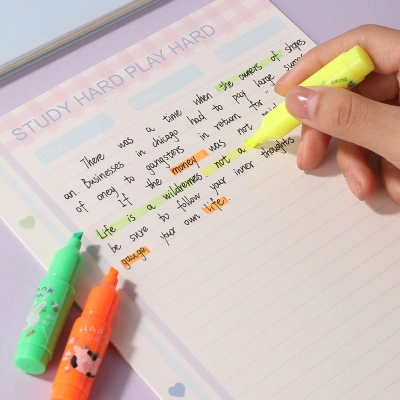 STUDY HARD PLAY HARD
There was a time when the owners of shops
an. Businesses in chicago had to pay large sums
of oney to gangsters in return for
If the money was not
Life is a wildernes not a
be sure to follow your inner thoughts
gauge your own life.